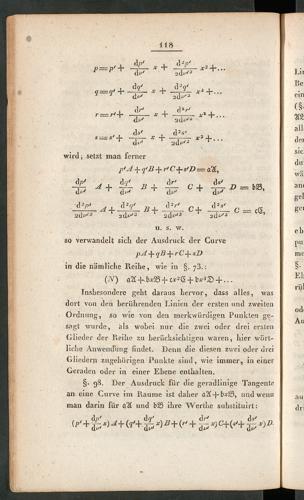 118
p = p' + dp'/dν' x + d²p'/2dν'² x² + ...
q = q' + dq'/dν' x + d²q'/2dν'² x² + ...
r = r' + dr'/dν' x + d²r'/2dν'² x² + ...
s = s' + ds'/dν' x + d²s'/2dν'² x² + ...
wird; setzt man ferner
p'A + q'B + r'C + s'D = a𝔄,
dp'/dν' A + dq'/dν' B + dr'/dν' C + ds'/dν' D = b𝔅,
d²p'/2dν'² A + d²q'/2dν'² B + d²r'/2dν'² C + d²s'/2dν'² C = cℭ,
u. s. w.
so verwandelt sich der Ausdruck der Curve
pA + qB + rC + sD
in die nämliche Reihe, wie in §. 73.:
(N) a𝔄 + bx𝔅 + cx²ℭ + dx³𝔇 + ...
Insbesondere geht daraus hervor, dass alles, was
dort von den berührenden Linien der ersten und zweiten
Ordnung, so wie von den merkwürdigen Punkten ge-
sagt wurde, als wobei nur die zwei oder drei ersten
Glieder der Reihe zu berücksichtigen waren, hier wört-
liche Anwendung findet. Denn die diesen zwei oder drei
Gliedern zugehörigen Punkte sind, wie immer, in einer
Geraden oder in einer Ebene enthalten.
§. 98. Der Ausdruck für die geradlinige Tangente
an eine Curve im Raume ist daher a𝔄 + bx𝔅, und wenn
man darin für a𝔄 und b𝔅 ihre Werthe substituirt:
(p' + dp'/dν' x) A + (q' + dq'/dν' x) B + (r' + dr'/dν' x) C + (s' + ds'/dν' x) D.